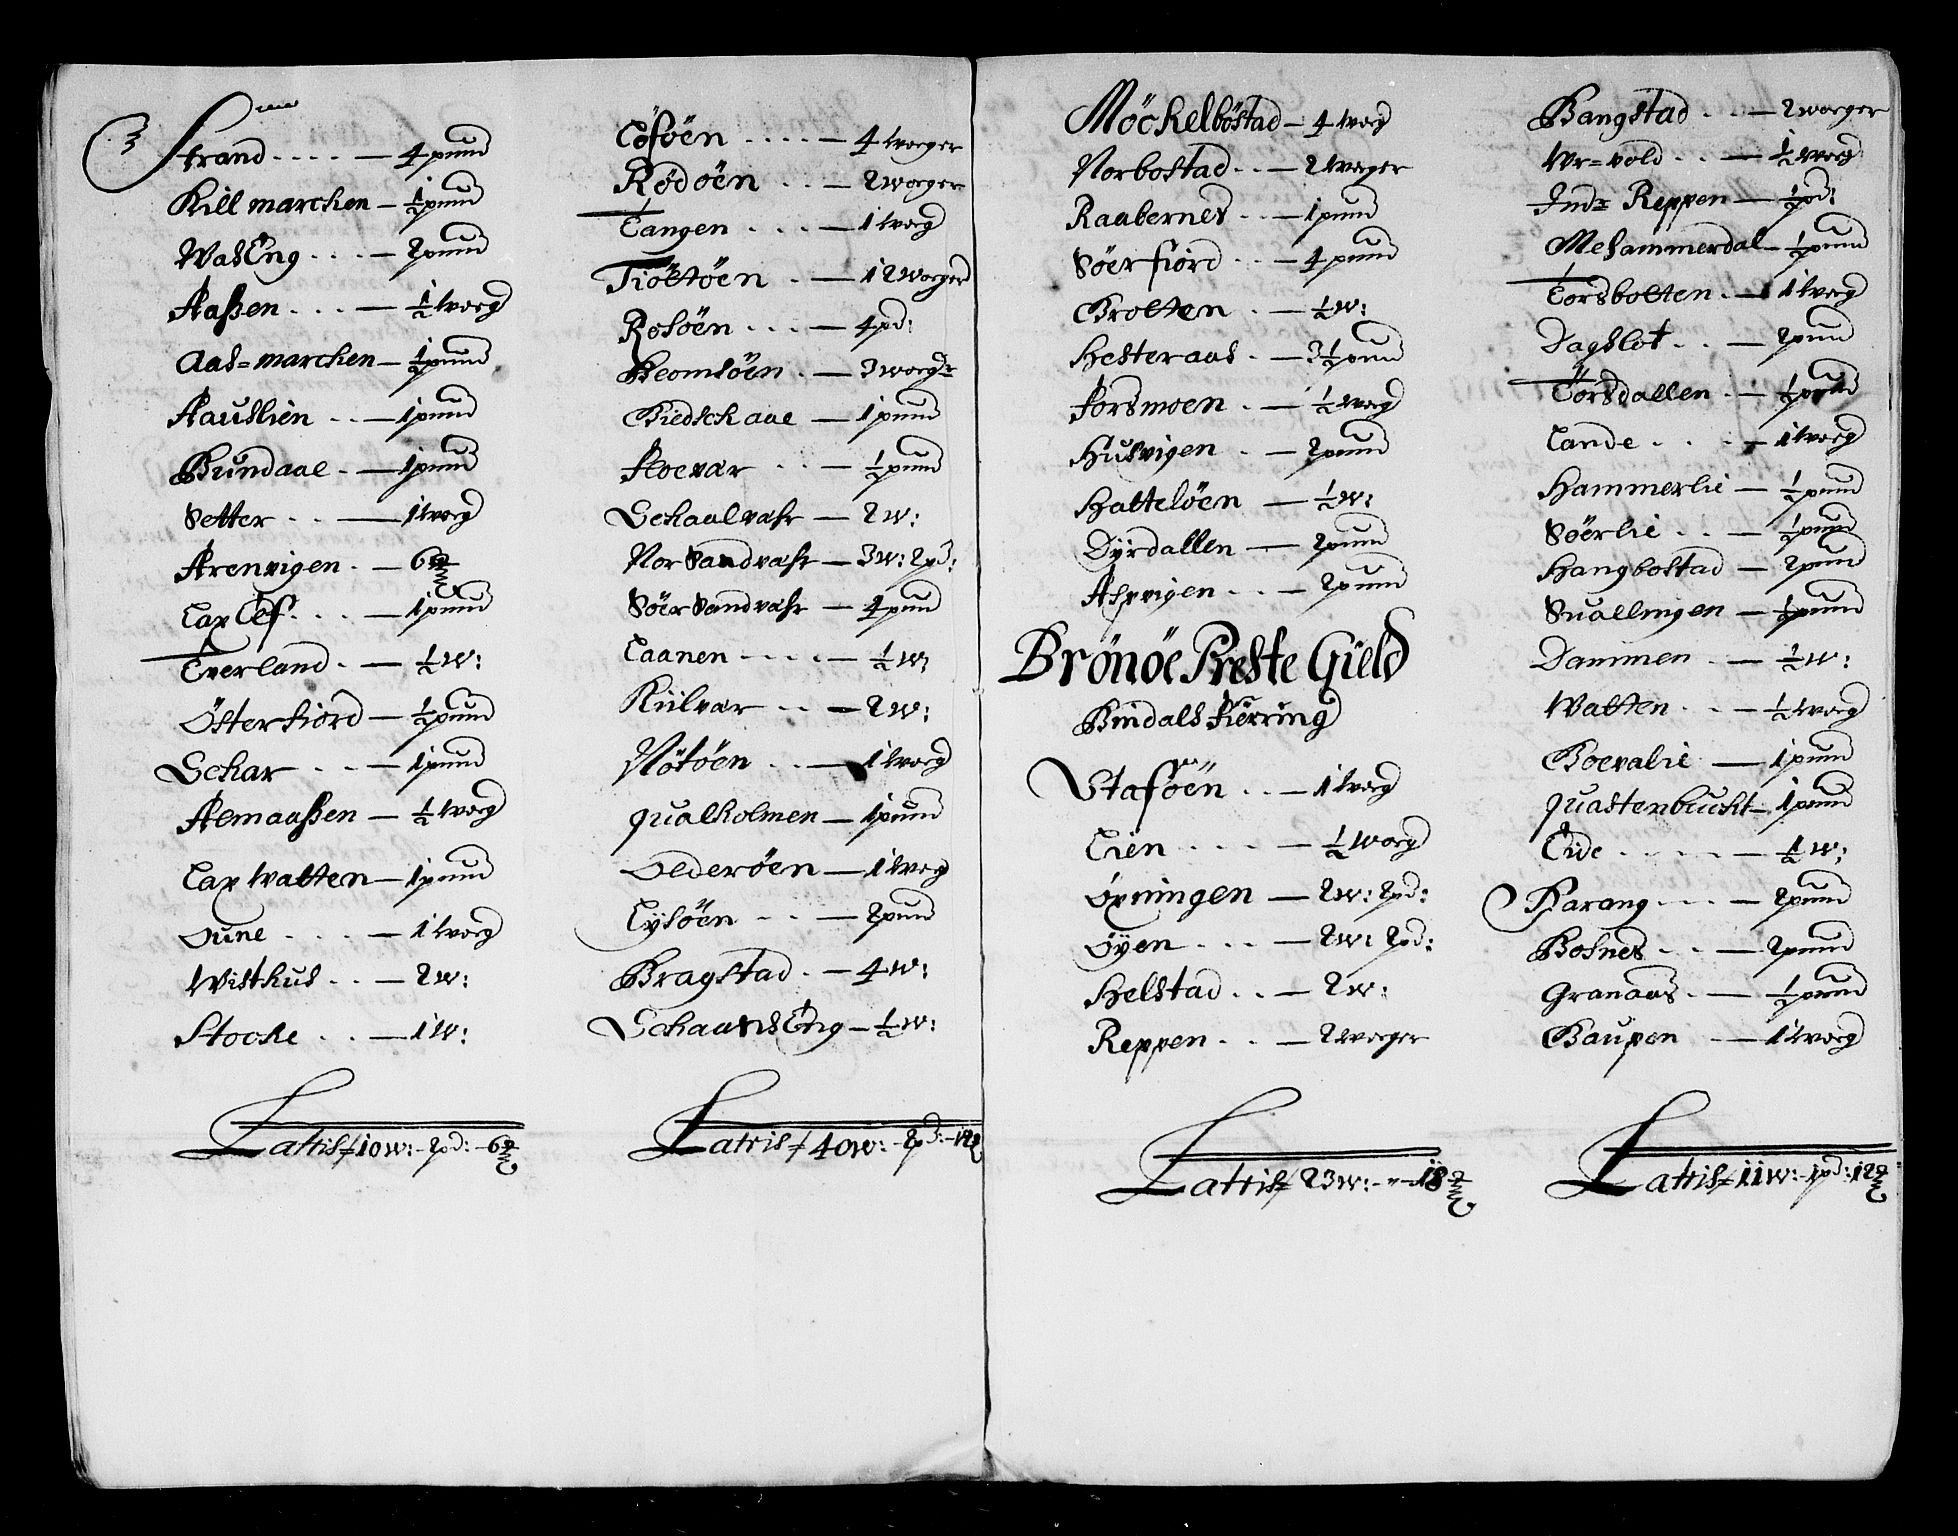 Strand . . . . — 4 pund
Kill marchen — ½ pund
Was Eng . . . — 2 pund
Aaßen . . . — ½ woeg
Aas= marchen — ½ pund
Hauslien . . — 1 pund
Bundaal . — 1 pund
Setter . . — 1 woeg
Arenvigen . — 6
Lax Elf . . . — 1 pund
Everland . — ½ w:
Österfiord — ½ pund
Schar . . — 1 pund
Almaaßen — ½ woeg
Lax Watten — 1 pund
Oune . . . — 1 woeg
Wisthus . . — 2 w:
Stocke . . — 1 w:
Lattis ƒ 10 w: - 2 pd: - 6
Löföen . . . . — 4 woeger
Rödöen . . — 2 woeger
Tangen . . . — 1 woeg
Tiöltöen . — 12 woeger
Rosöen . . . — 4 pd:
Heomsöen . — 3 woegr
Biedschaal — 1 pund
Floevær . . — ½ pund
Schaalvahr — 2 w:
Nor Sandvahr — 3 w: 2 pd:
Söer Sandvahr — 4 pund
Laanen . . . . — ½ w:
Kiilvær . . — 2 w:
Nötöen . . — 1 woeg
qualholmen — 1 pund
Olderöen — 1 woeg
Lysöen . . — 2 pund
Bragstad . — 4 w:
Schaans Eng — ½ w:
Latris ƒ 40 w: - 2 pd: - 12
Möckelböstad — 4 woeg
Norbostad . . — 2 woeger
Raabernes . . — 1 pund
Söerfiord . . — 4 pund
Brolten . — ½ w:
Hesteraas . — 3½ pund
Forsmoen . — ½ woeg
Husvigen . — 2 pund
Hattelöen — ½ w:
Dyrdallen — 2 pund
Aspvigen . . . — 2 pund
Brönöe Preste Gield
Bindals Fierring
Staföen . . — 1 woeg
Lien . . . . — ½ woeg
Öxningen — 2 w: 2 pd:
Öyen . . . — 2 w: 2 pd:
Helstad . . — 2 w:
Reppen . . — 2 woeger
Latris ƒ 23 w: - " - 18
Bangstad . . — 2 woeger
Wr=vold . . — ½ woeg
Indr Reppen — ½ pd:
Mesammerdal — ½ pund
Torsbolten . — 1 woeg
Dagslot . . — 2 pund
Törsdallen . — ½ pund
Lande . . . — 1 woeg
Hammerlie — ½ pund
Söerlie . . — ½ pund
Hangbostad — 2 pund
Suallingen — ½ pund
Dammen . — ½ w:
Watten . . — ½ woeg
Boevalie — 1 pund
quastenbucht — 1 pund
Eide . . . . — ½ w:
Harang . . . — 2 pund
Bosnes . . — 2 pund
Granaas . — ½ pund
Baupen . — 1 woeg
Latris ƒ 11 w: - 1 pd: 12